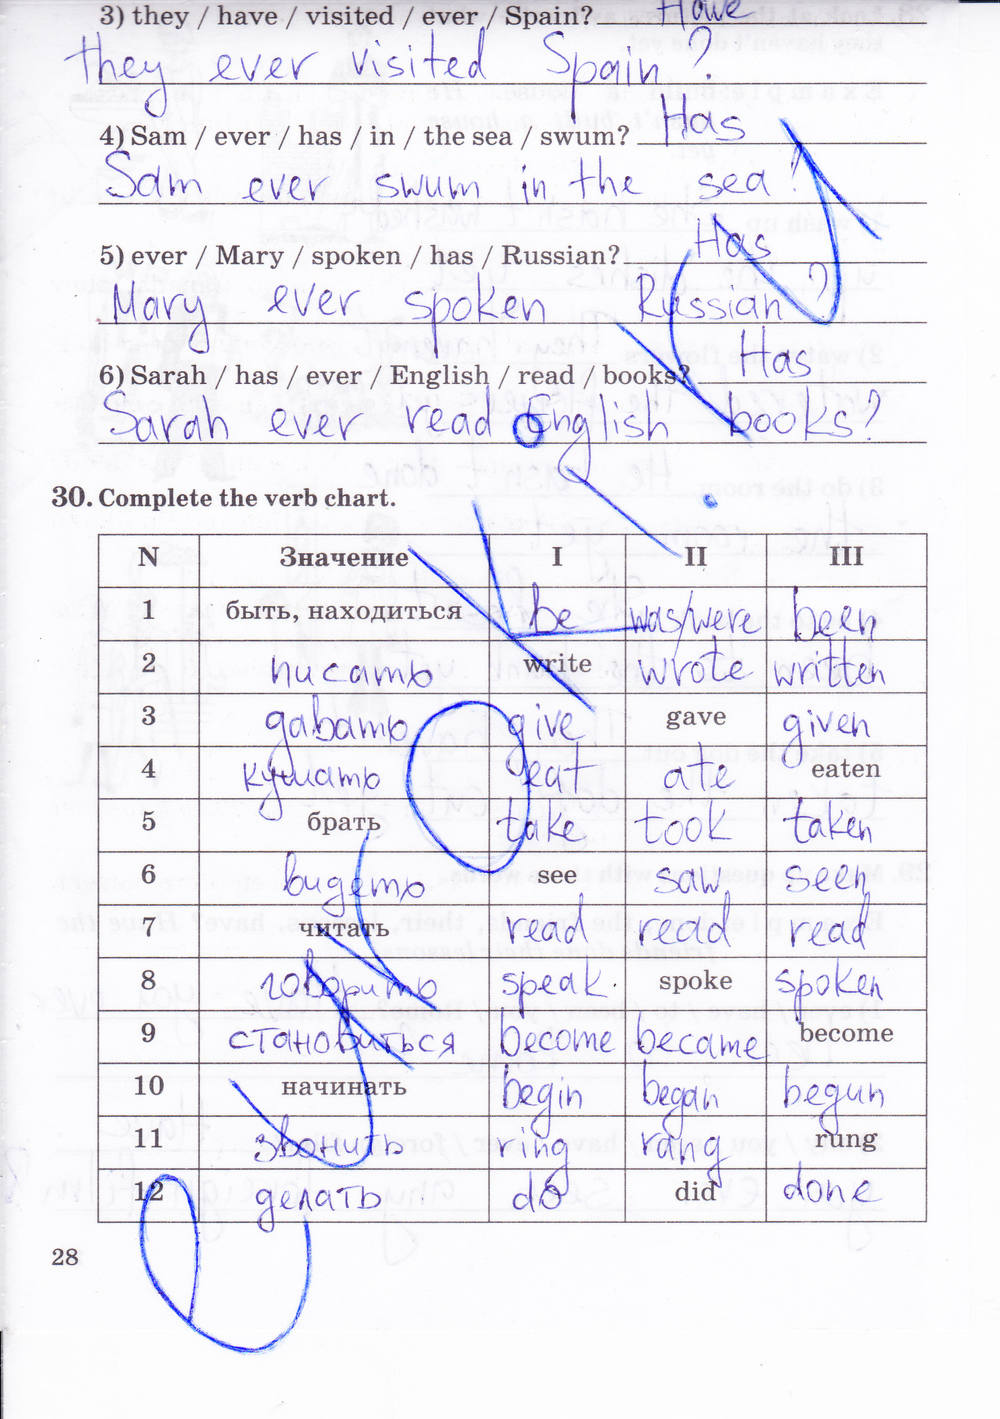 3) they / have / visited / ever / Spain? Have
they ever visited Spain?
4) Sam / ever / has / in / the sea / swum? Has
Sam ever swum in the sea?
5) ever / Mary / spoken / has / Russian? Has
Mary ever spoken Russian?
6) Sarah / has / ever / English / read / books? Has
Sarah ever read English books?
30. Complete the verb chart.
N Значение I II III
1 быть, находиться be was/were been
2 писать write wrote written
3 давать give gave given
4 кушать eat ate eaten
5 брать take took taken
6 видеть see saw seen
7 читать read read read
8 говорить speak spoke spoken
9 становиться become became become
10 начинать begin began begun
11 звонить ring rang rung
12 делать do did done
28